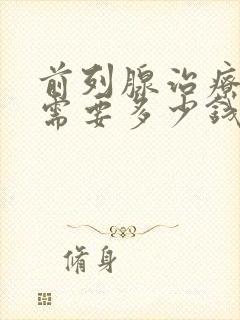 前列腺治疗
需要多少钱
脩身